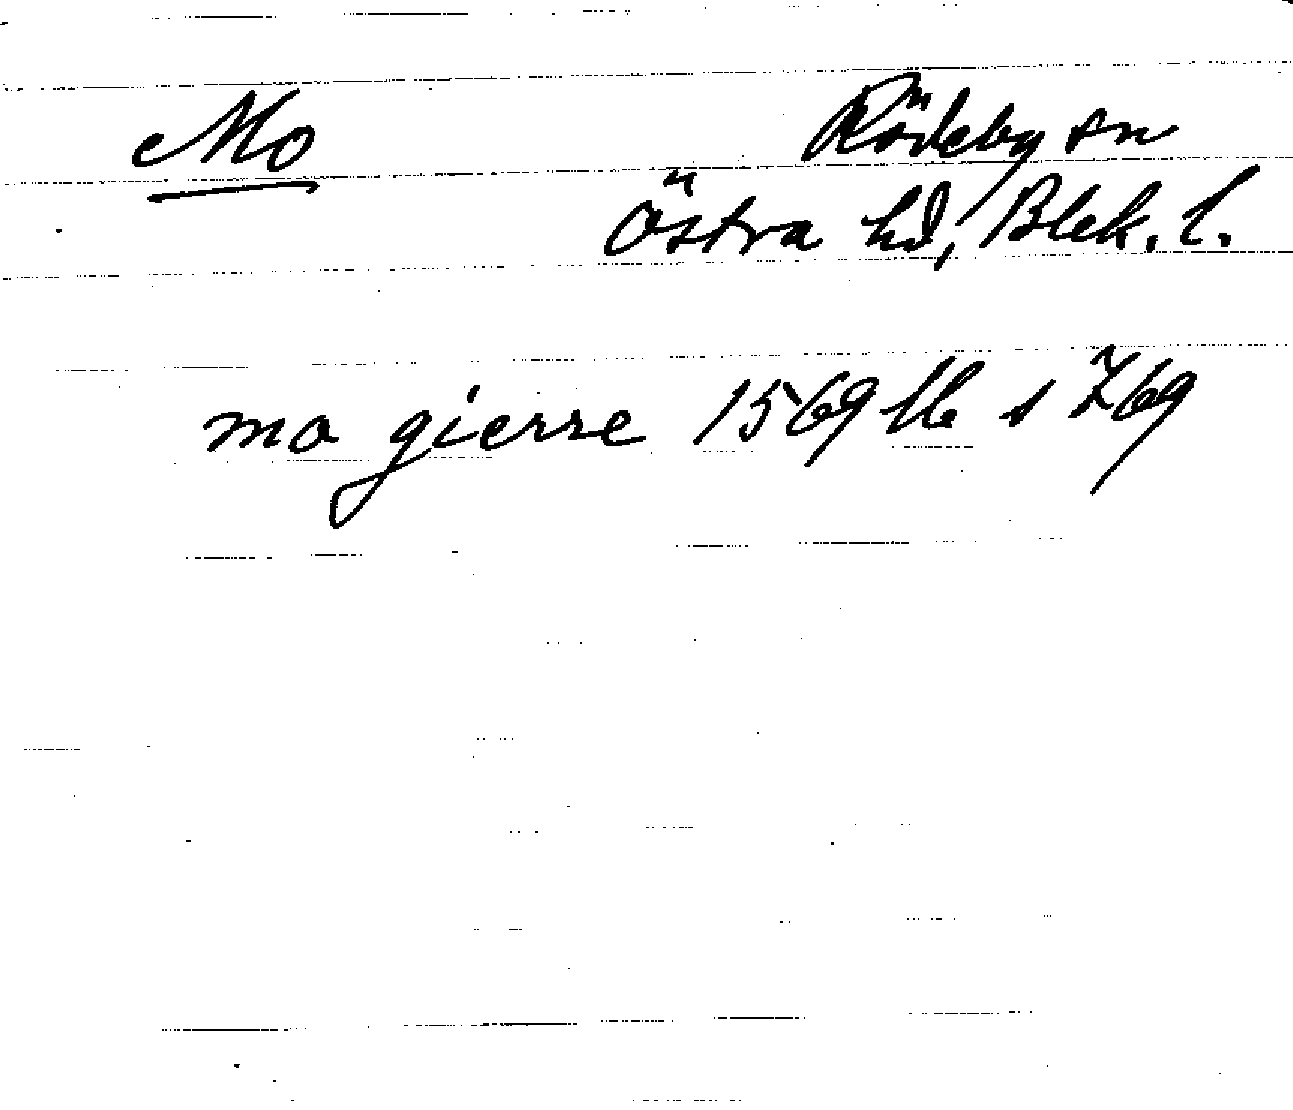 Mo
Rödeby sn
Östra hd, Blek. l.
mo gierre 1569 lb s 769